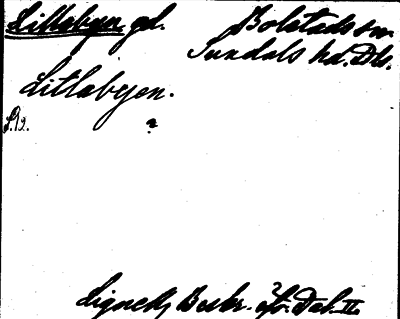 Litlabyn gd. Bolstads sn
Sundals hd. Dls.
Litlabyen.
Signell, Beskr. öfv. Dal. II.